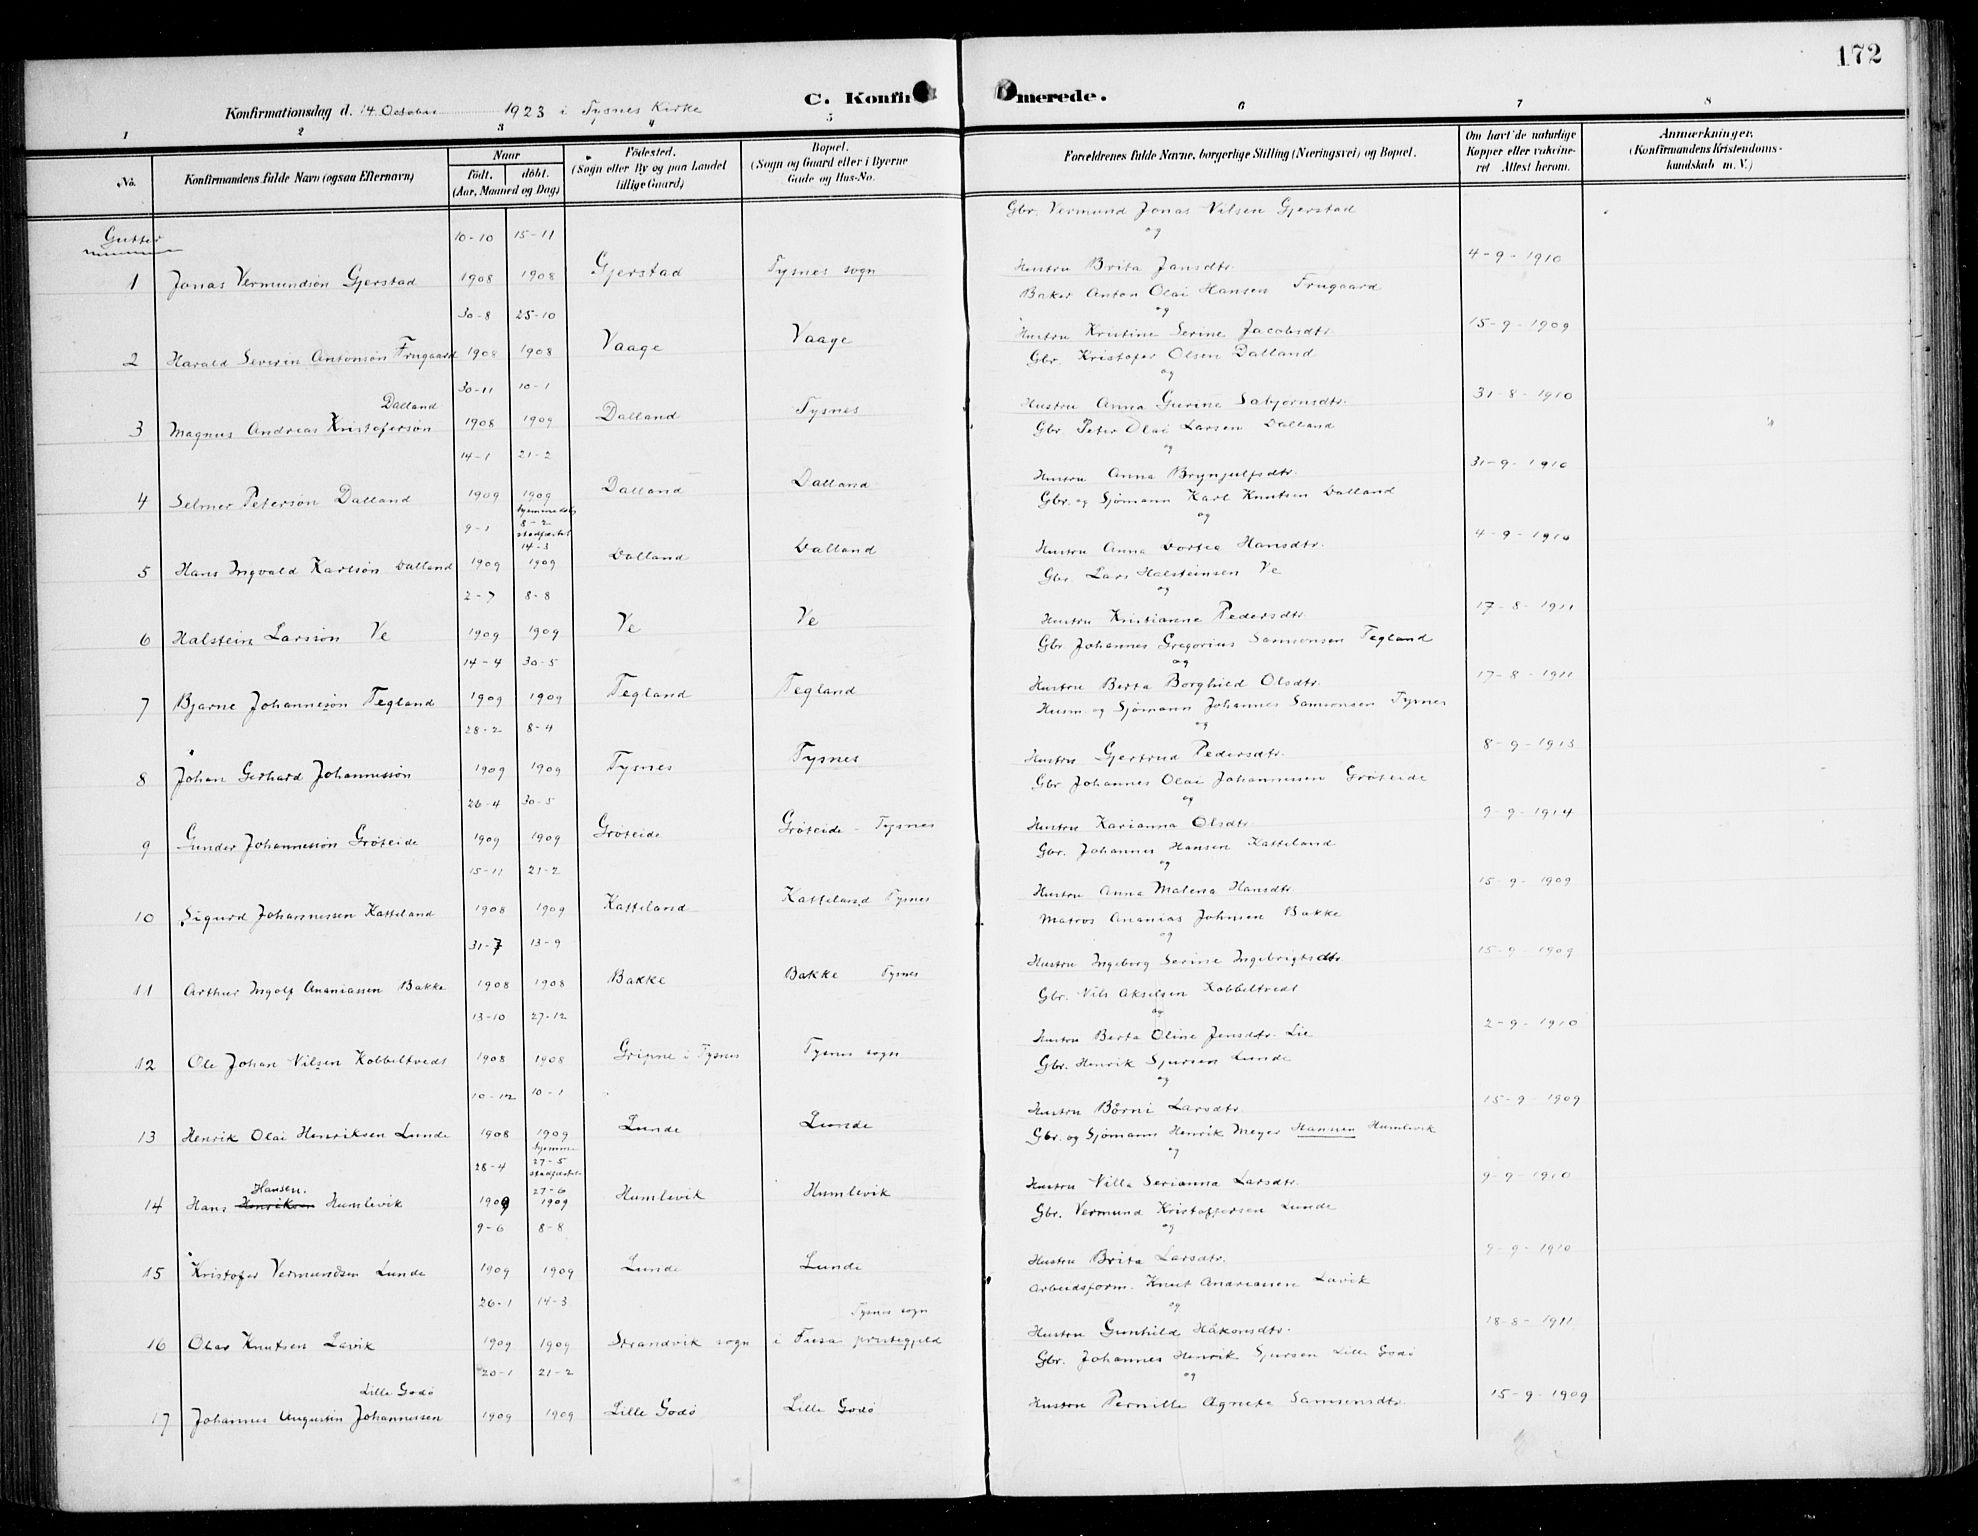 172
Konfirmationsdag d. 14 October 1923 i Tysnes Kirke
C. Konfirmerede.
1 2 3 4 5 6 7 8
No. Konfirmandens fulde Navn (ogsaa Efternavn) Naar født. døbt. (Aar, Maaned og Dag) Fødested. (Sogn eller By og paa Landet tillige Gaard) Bopæl. (Sogn og Gaard eller i Byerne Gade og Hus-No. Forældrenes fulde Navne, borgerlige Stilling (Næringsvei) og Bopæl. Om havt de naturlige Kopper eller vakcineret Attest herom. Anmærkninger. (Konfirmandens Kristendomskundskab m. V.)
Gutter
10-10 15-11 Gbr. Vermund Jonas Nilsen Gjerstad
og
1 Jonas Vermundsøn Gjerstad 1908 1908 Gjerstad Tysnes sogn Hustru Brita Jansdtr. 4-9-1910
30-8 25-10 Baker Anton Olai Hansen Frugaard
og
2 Harald Severin Antonsøn Frugaard 1908 1908 Vaage Vaage Hustru Kristine Serine Jacobsdtr. 15-9-1909
30-11 10-1 Gbr. Kristofer Olsen Dalland
og
Dalland
3 Magnus Andreas Kristofersøn 1908 1909 Dalland Tysnes Hustru Anna Gurine Sabjørnsdtr. 31-8-1910
14-1 21-2 Gbr. Peter Olai Larsen Dalland
og
4 Selmer Petersøn Dalland 1909 1909 Dalland Dalland Hustru Anna Brynjulfsdtr. 31-9-1910
hjemmedøbt
9-1 8-2 Gbr. og Sjømann Karl Knutsen Dalland
stadfæstet og
14-3
5 Hans Ingvald Karlsøn Dalland 1909 1909 Dalland Dalland Hustru Anna Dortea Hansdtr. 4-9-1910
2-7 8-8 Gbr. Lars Halsteinsen Ve
og
6 Halstein Larssøn Ve 1909 1909 Ve Ve Hustru Kristianne Pedersdtr. 17-8-1911
14-4 30-5 Gbr. Johannes Gregorius Samsonsen Tegland
og
7 Bjarne Johannesøn Tegland 1909 1909 Tegland Tegland Hustru Berta Borghild Olsdtr. 17-8-1911
28-2 8-4 Husm. og Sjømann Johannes Samsonsen Tysnes
og
8 Johan Gerhard Johannessøn 1909 1909 Tysnes Tysnes Hustru Gjertrud Pedersdtr. 8-9-1913
26-4 30-5 Gbr Johannes Olai Johannessen Grøteide
og
9 Gunder Johannessøn Grøteide 1909 1909 Grøteide Grøteide - Tysnes Hustru Karianna Olsdtr. 9-9-1914
15-11 21-2 Gbr. Johannes Hansen Katteland
og
10 Sigurd Johannessen Katteland 1908 1909 Katteland Katteland Tysnes Hustru Anna Malena Hansdtr. 15-9-1909
31-7 13-9 Matros Ananias Johnsen Bakke
og
11 Arthur Ingolf Ananiassen Bakke 1908 1908 Bakke Bakke Tysnes Hustru Ingeborg Serine Ingebrigtsdtr. 15-9-1909
13-10 27-12 Gbr. Nils Akselsen Kobbeltvedt
og
12 Ole Johan Nilsen Kobbeltvedt 1908 1908 Gripne i Tysnes Tysnes sogn Hustru Berta Oline Jensdtr. Lie 2-9-1910
10-12 10-1 Gbr. Henrik Sjursen Lunde
og
13 Henrik Olai Henriksen Lunde 1908 1909 Lunde Lunde Hustru Børni Larsdtr. 15-9-1909
hjemme
28-4 27-5 Gbr. og Sjømann Henrik Meyer Hansen Humlevik
stadfæstet og
Hansen. 27-6
14 Hans Henriksen Humlevik 1909 1909 Humlevik Humlevik Hustru Villa Serianna Larsdtr. 9-9-1910
9-6 8-8 Gbr. Vermund Kristoffersen Lunde
og
15 Kristofer Vermundsen Lunde 1909 1909 Lunde Lunde Hustru Brita Larsdtr. 9-9-1910
26-1 14-3 Tysnes sogn Arbeidsform. Knut Andreassen Lavik
og
16 Olav Knutsen Lavik 1909 1909 Strandvik sogn i Fusa prestegjeld Hustru Gunhild Håkonsdtr. 18-8-1911
20-1 21-2 Gbr. Johannes Henrik Sjursen Lille Godø
Lille Godø og
17 Johannes Augustin Johannessen 1909 1909 Lille Godø Lille Godø Hustru Pernille Agnete Samsonsdtr. 15-9-1909